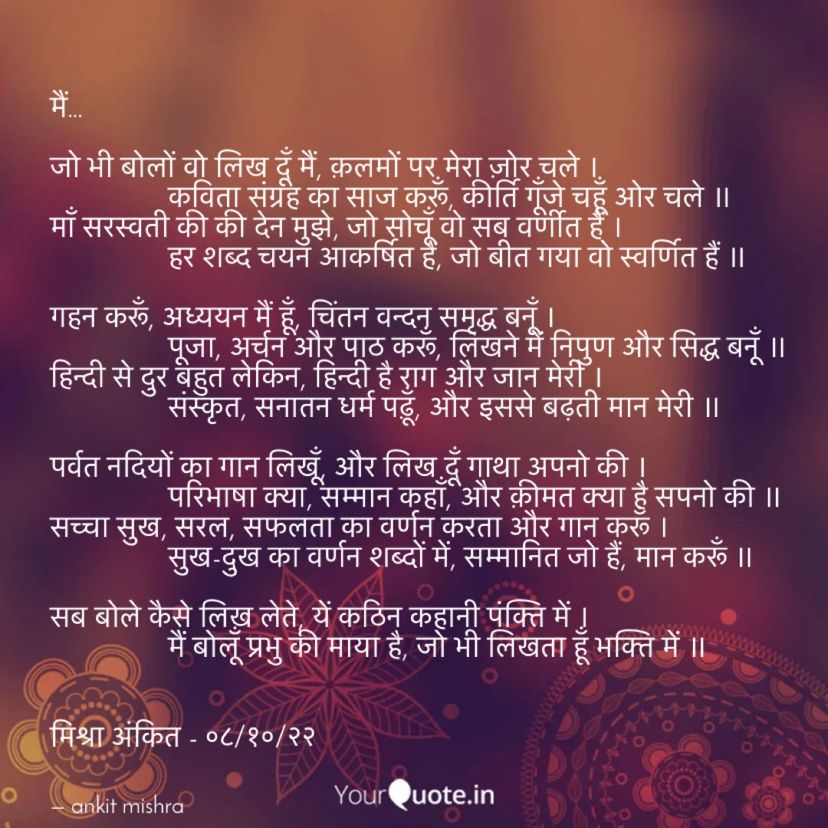 मैं...
जो भी बोलों वो लिख दूँ मैं, क़लमों पर मेरा ज़ोर चले ।
कविता संग्रह का साज करूँ, कीर्ति गूँजे चहूँ ओर चले ॥
माँ सरस्वती की की देन मुझे, जो सोचूँ वो सब वर्णीत हैं ।
हर शब्द चयन आकर्षित हैं, जो बीत गया वो स्वर्णित हैं ॥
गहन करूँ, अध्ययन मैं हूँ, चिंतन वन्दन समृद्ध बनूँ ।
पूजा, अर्चन और पाठ करूँ, लिखने में निपुण और सिद्ध बनूँ ॥
हिन्दी से दुर बहुत लेकिन, हिन्दी है राग और जान मेरी ।
संस्कृत, सनातन धर्म पढ़ूँ, और इससे बढ़ती मान मेरी ॥
पर्वत नदियों का गान लिखूँ, और लिख दूँ गाथा अपनो की ।
परिभाषा क्या, सम्मान कहाँ, और क़ीमत क्या है सपनो की ॥
सच्चा सुख, सरल, सफलता का वर्णन करता और गान करूँ ।
सुख-दुख का वर्णन शब्दों में, सम्मानित जो हैं, मान करूँ ॥
सब बोले कैसे लिख लेते, यें कठिन कहानी पंक्ति में ।
मैं बोलूँ प्रभु की माया है, जो भी लिखता हूँ भक्ति में ॥
मिश्रा अंकित - ०८/१०/२२
YourQuote.in
– ankit mishra